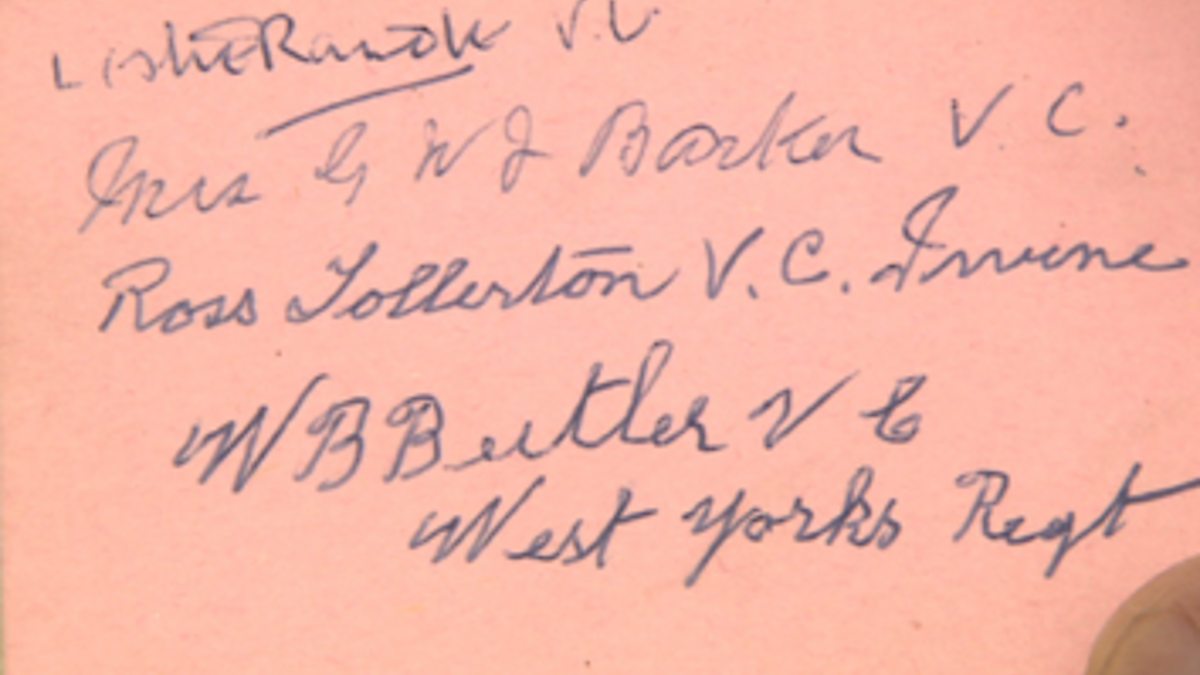 V.C.
Mrs G W J Barker V.C.
Ross Tollerton V.C. Irvine
W B Butler V C
West Yorks Regt